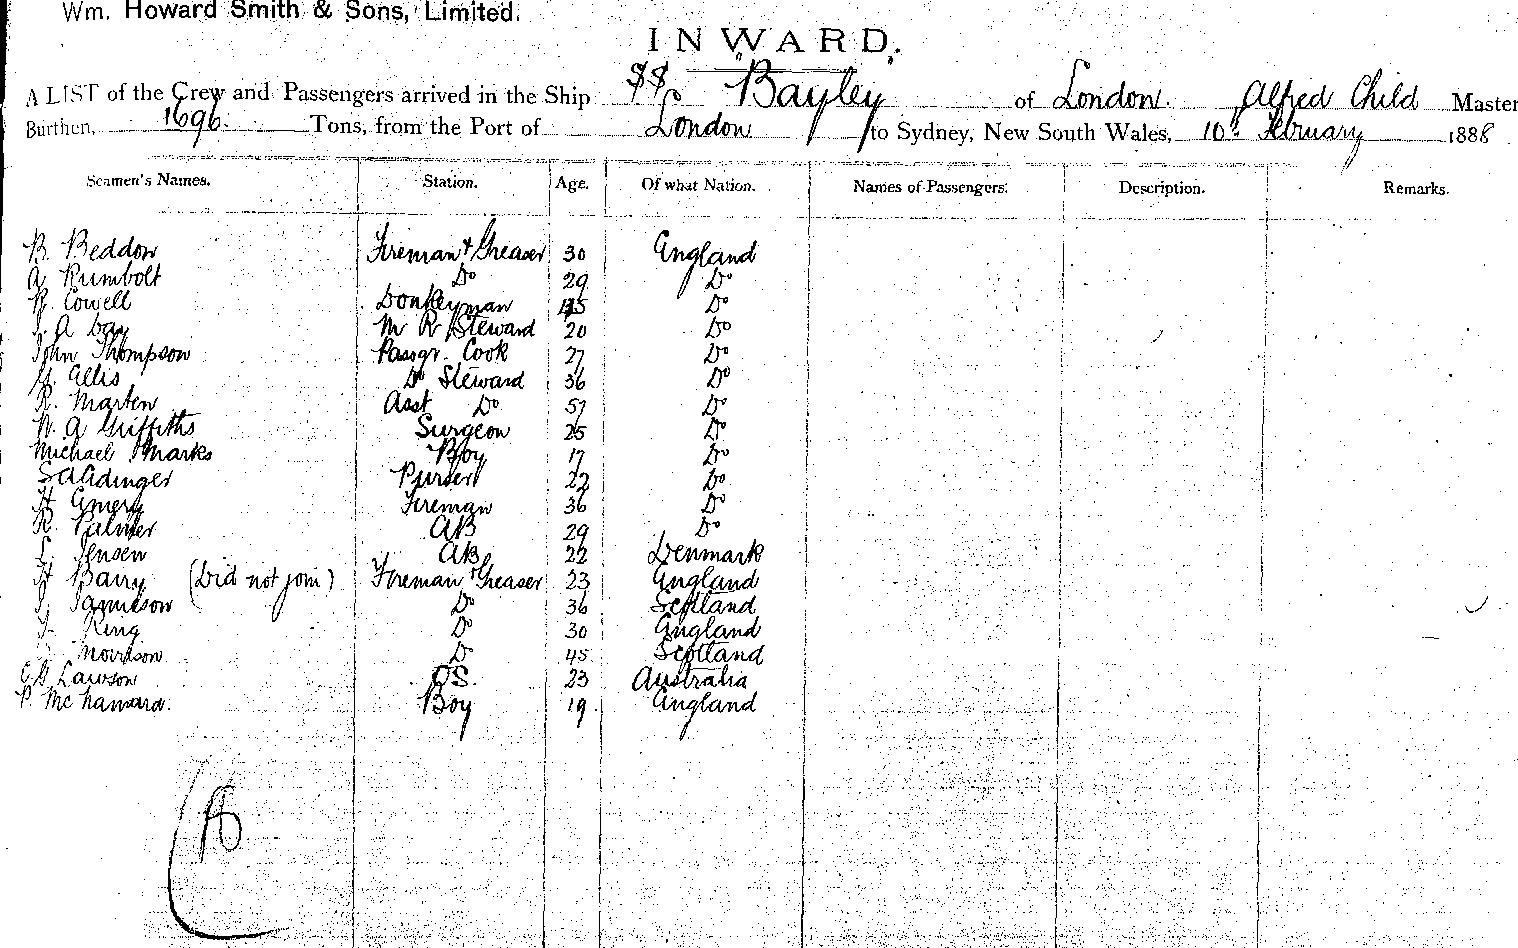 Wm. Howard Smith & Sons, Limited.
INWARD.
A LIST of the Crew and Passengers arrived in the Ship SS "Bayley" of London. Alfred Child Master
Burthen, 1696. Tons, from the Port of London to Sydney, New South Wales, 10th February 1888
Seamen's Names. Station. Age. Of what Nation. Names of Passengers. Description. Remarks.
B. Beddow Fireman & Greaser 30 England
A Rumbolt Do 29 Do
R. Cowell Donkeyman 45 Do
A Day M R Steward 20 Do
John Thompson Passgr. Cook 27 Do
Ellis Do Steward 36 Do
R. Marten Asst Do 57 Do
W. A Griffiths Surgeon 25 Do
Michael Marks Boy 17 Do
Purser 22 Do
H Emery Fireman 36 Do
R. Palmer AB 29 Do
Jensen AB 22 Denmark
H Barry (Did not join) Fireman & Greaser 23 England
Jamieson Do 36 Scotland
King Do 30 England
Morrison Do 45 Scotland
Lawson OS. 23 Australia
P. McNamara. Boy 19 England